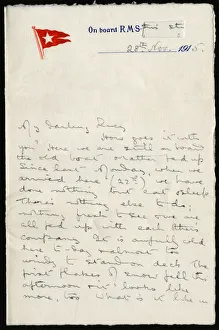 On board R.M.S.
28th Nov. 1915.
My Darling
How goes it with
you? Here we are still on board
the old boat rather fed up
since last Monday, when we
arrived here (22nd) we have
done nothing but eat & sleep
There's nothing else to do;
nothing fresh to see & we are
all fed up with each others
company. It is awfully cold
here to-day & almost too
windy to stand on deck. The
first flakes of snow fell this
afternoon & it looks like
more, too. What is it like in